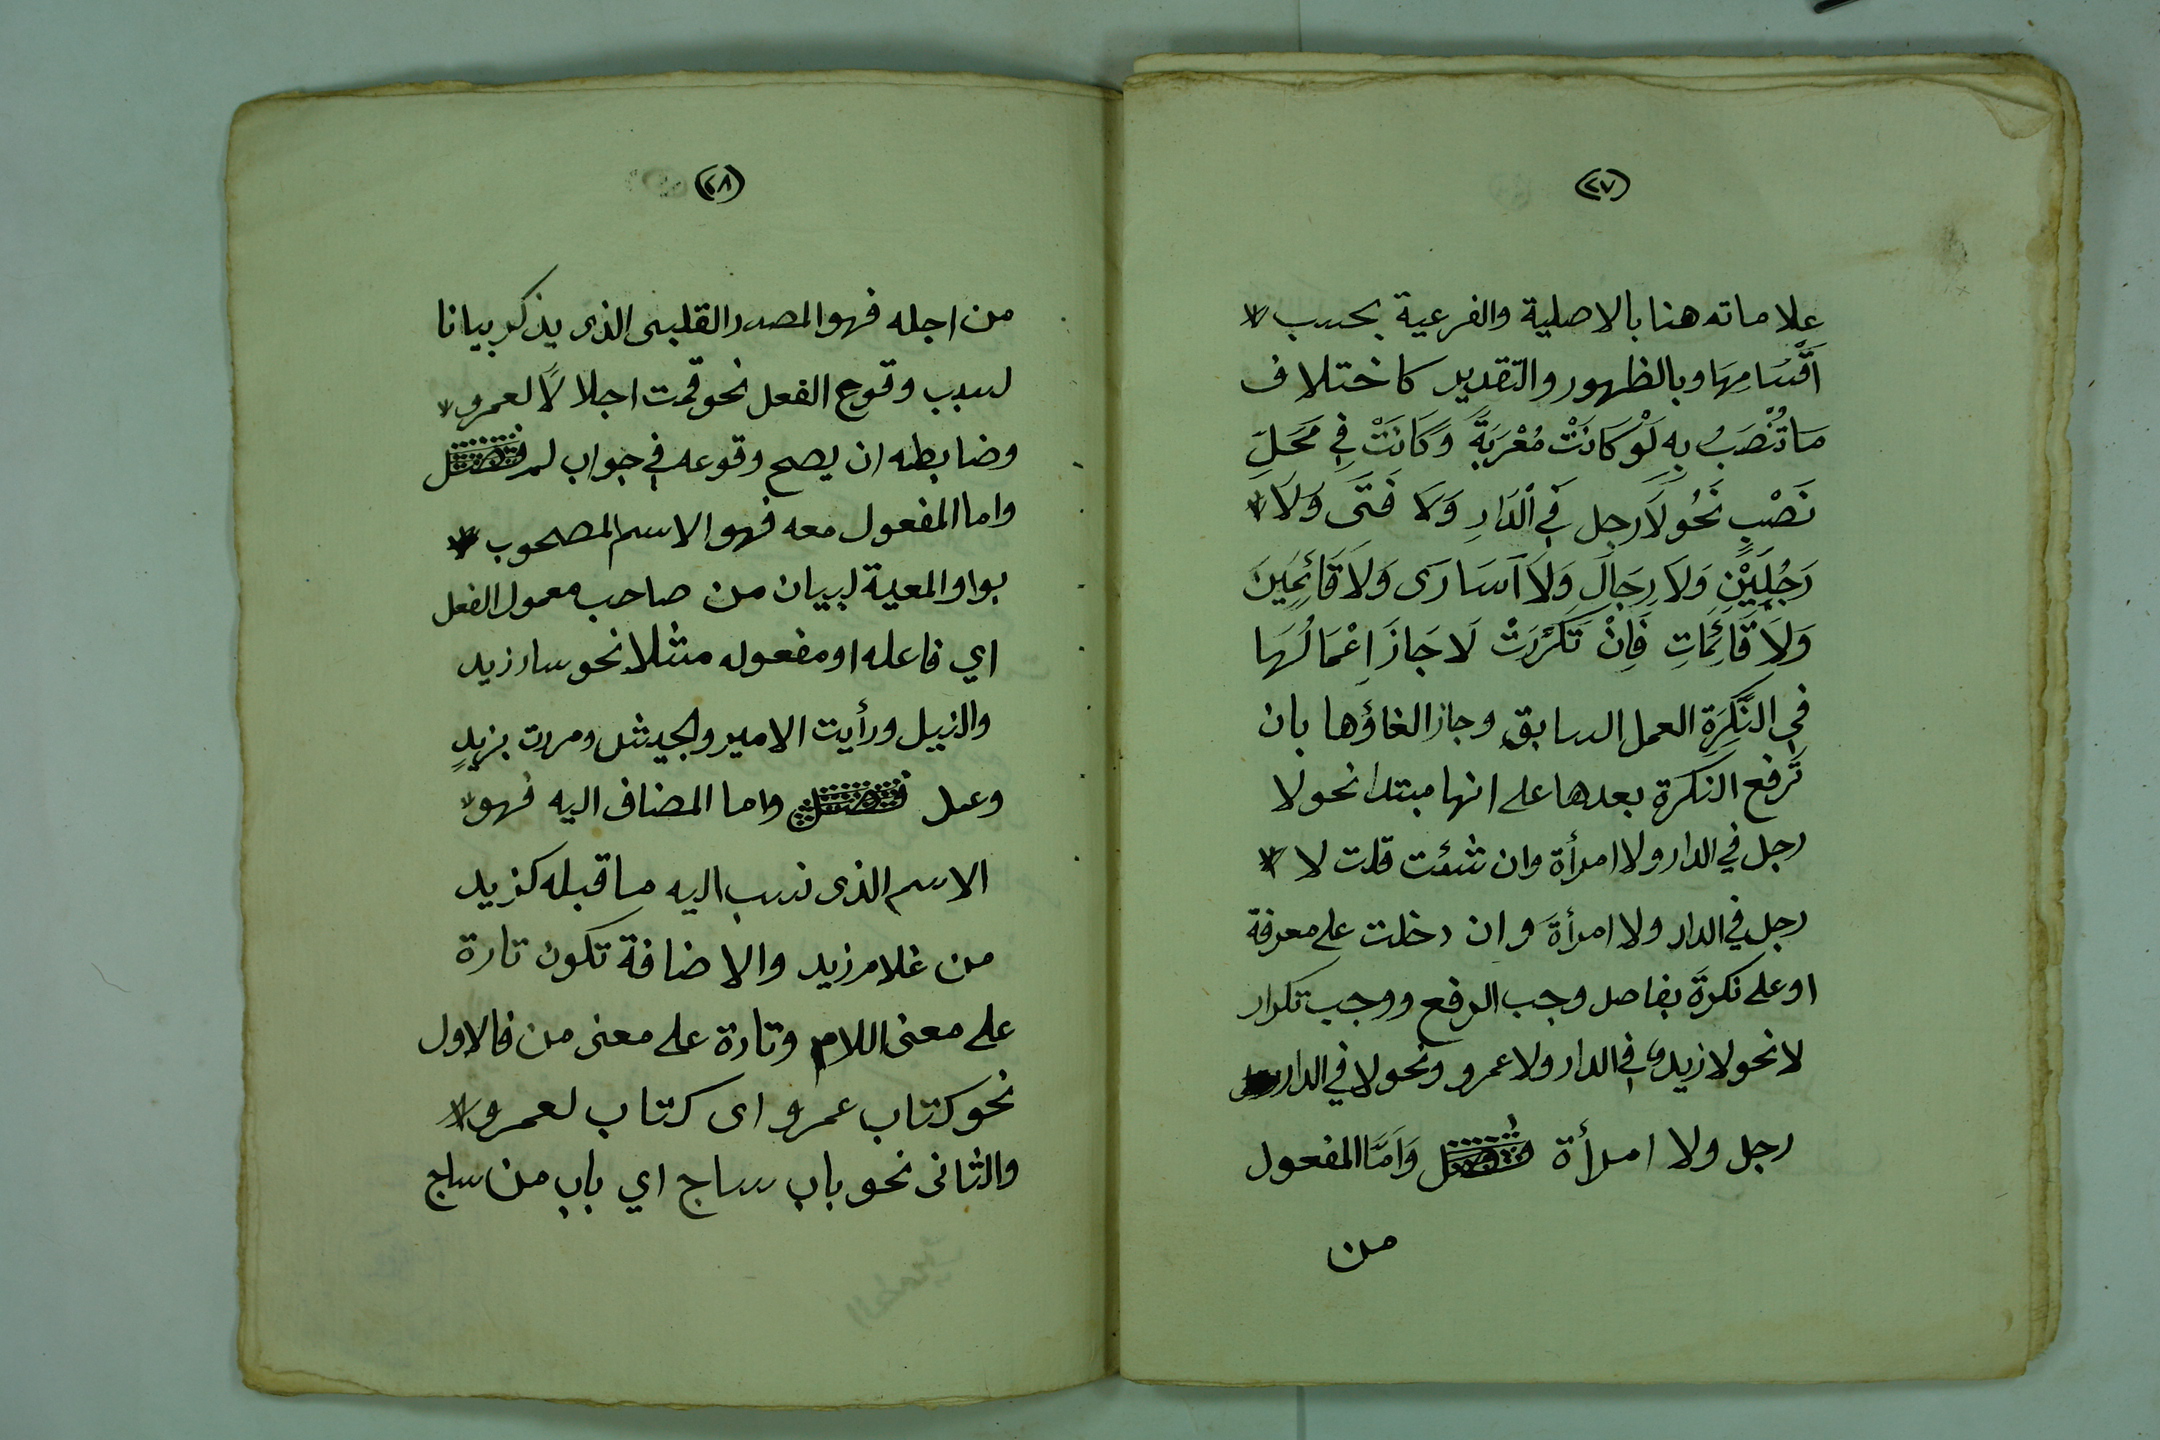 (٢٧)
علاماته هنا بالاصلية والفرعية بحسب
اَقْسَامِهَا وبالظهور والتقدير كاختلاف
مَا تُنْصَبُ بِهِ لَوْ كَانَتْ مُعْرَبَةً وَكَانَتْ فِي مَحَلِّ
نَصْبٍ نَحْو لَا رجل فِي الدَارِ وَلَا فَتَى وَلَا
رَجُلَيْنِ وَلَا رِجَالَ وَلَا اَسَارَى وَلَا قَائِمِينَ
وَلَا قَائِمَاتِ فَاِنْ تَكَرَّرَتْ لَا جَازَ اِعْمَالُهَا
فِي النَّكِرَةِ العمل السابق وجاز الغاؤها بان
تَرفع النكرة بعدها على انها مبتدا نحو لا
رجل في الدار ولا امرأة وان شئت قلت لا
رجل في الدار ولا امرأةَ وان دخلت على معرفة
او على نكرة بفاصل وجب الرفع ووجب تكرار
لا نحو لا زيد في الدار ولا عمرو ونحو لا في الدار
رجل ولا امرأة فصل وَاَمَّا المفعول
من
(٢٨)
من اجله فهو المصدر القلبى الذى يذكر بيانا
لسبب وقوع الفعل نحو قمت اجلالًا لعمرو
وضابطه ان يصح وقوعه في جواب لم فصل
واما المفعول معه فهو الاسم المصحوب
بواو المعية لبيان من صاحب معمول الفعل
اي فاعله او مفعوله مثلا نحو سار زيد
والنيل ورأيت الامير والجيش ومررت بزيدٍ
وعمل فصل واما المضاف اليه فهو
الاسم الذى نسب اليه ما قبله كزيد
من غلام زيد والاضافة تكون تارة
على معنى اللام وتارة على معنى من فالاول
نحو كتاب عمرو اى كتاب لعمرو
والثانى نحو باب ساج اي باب من ساج